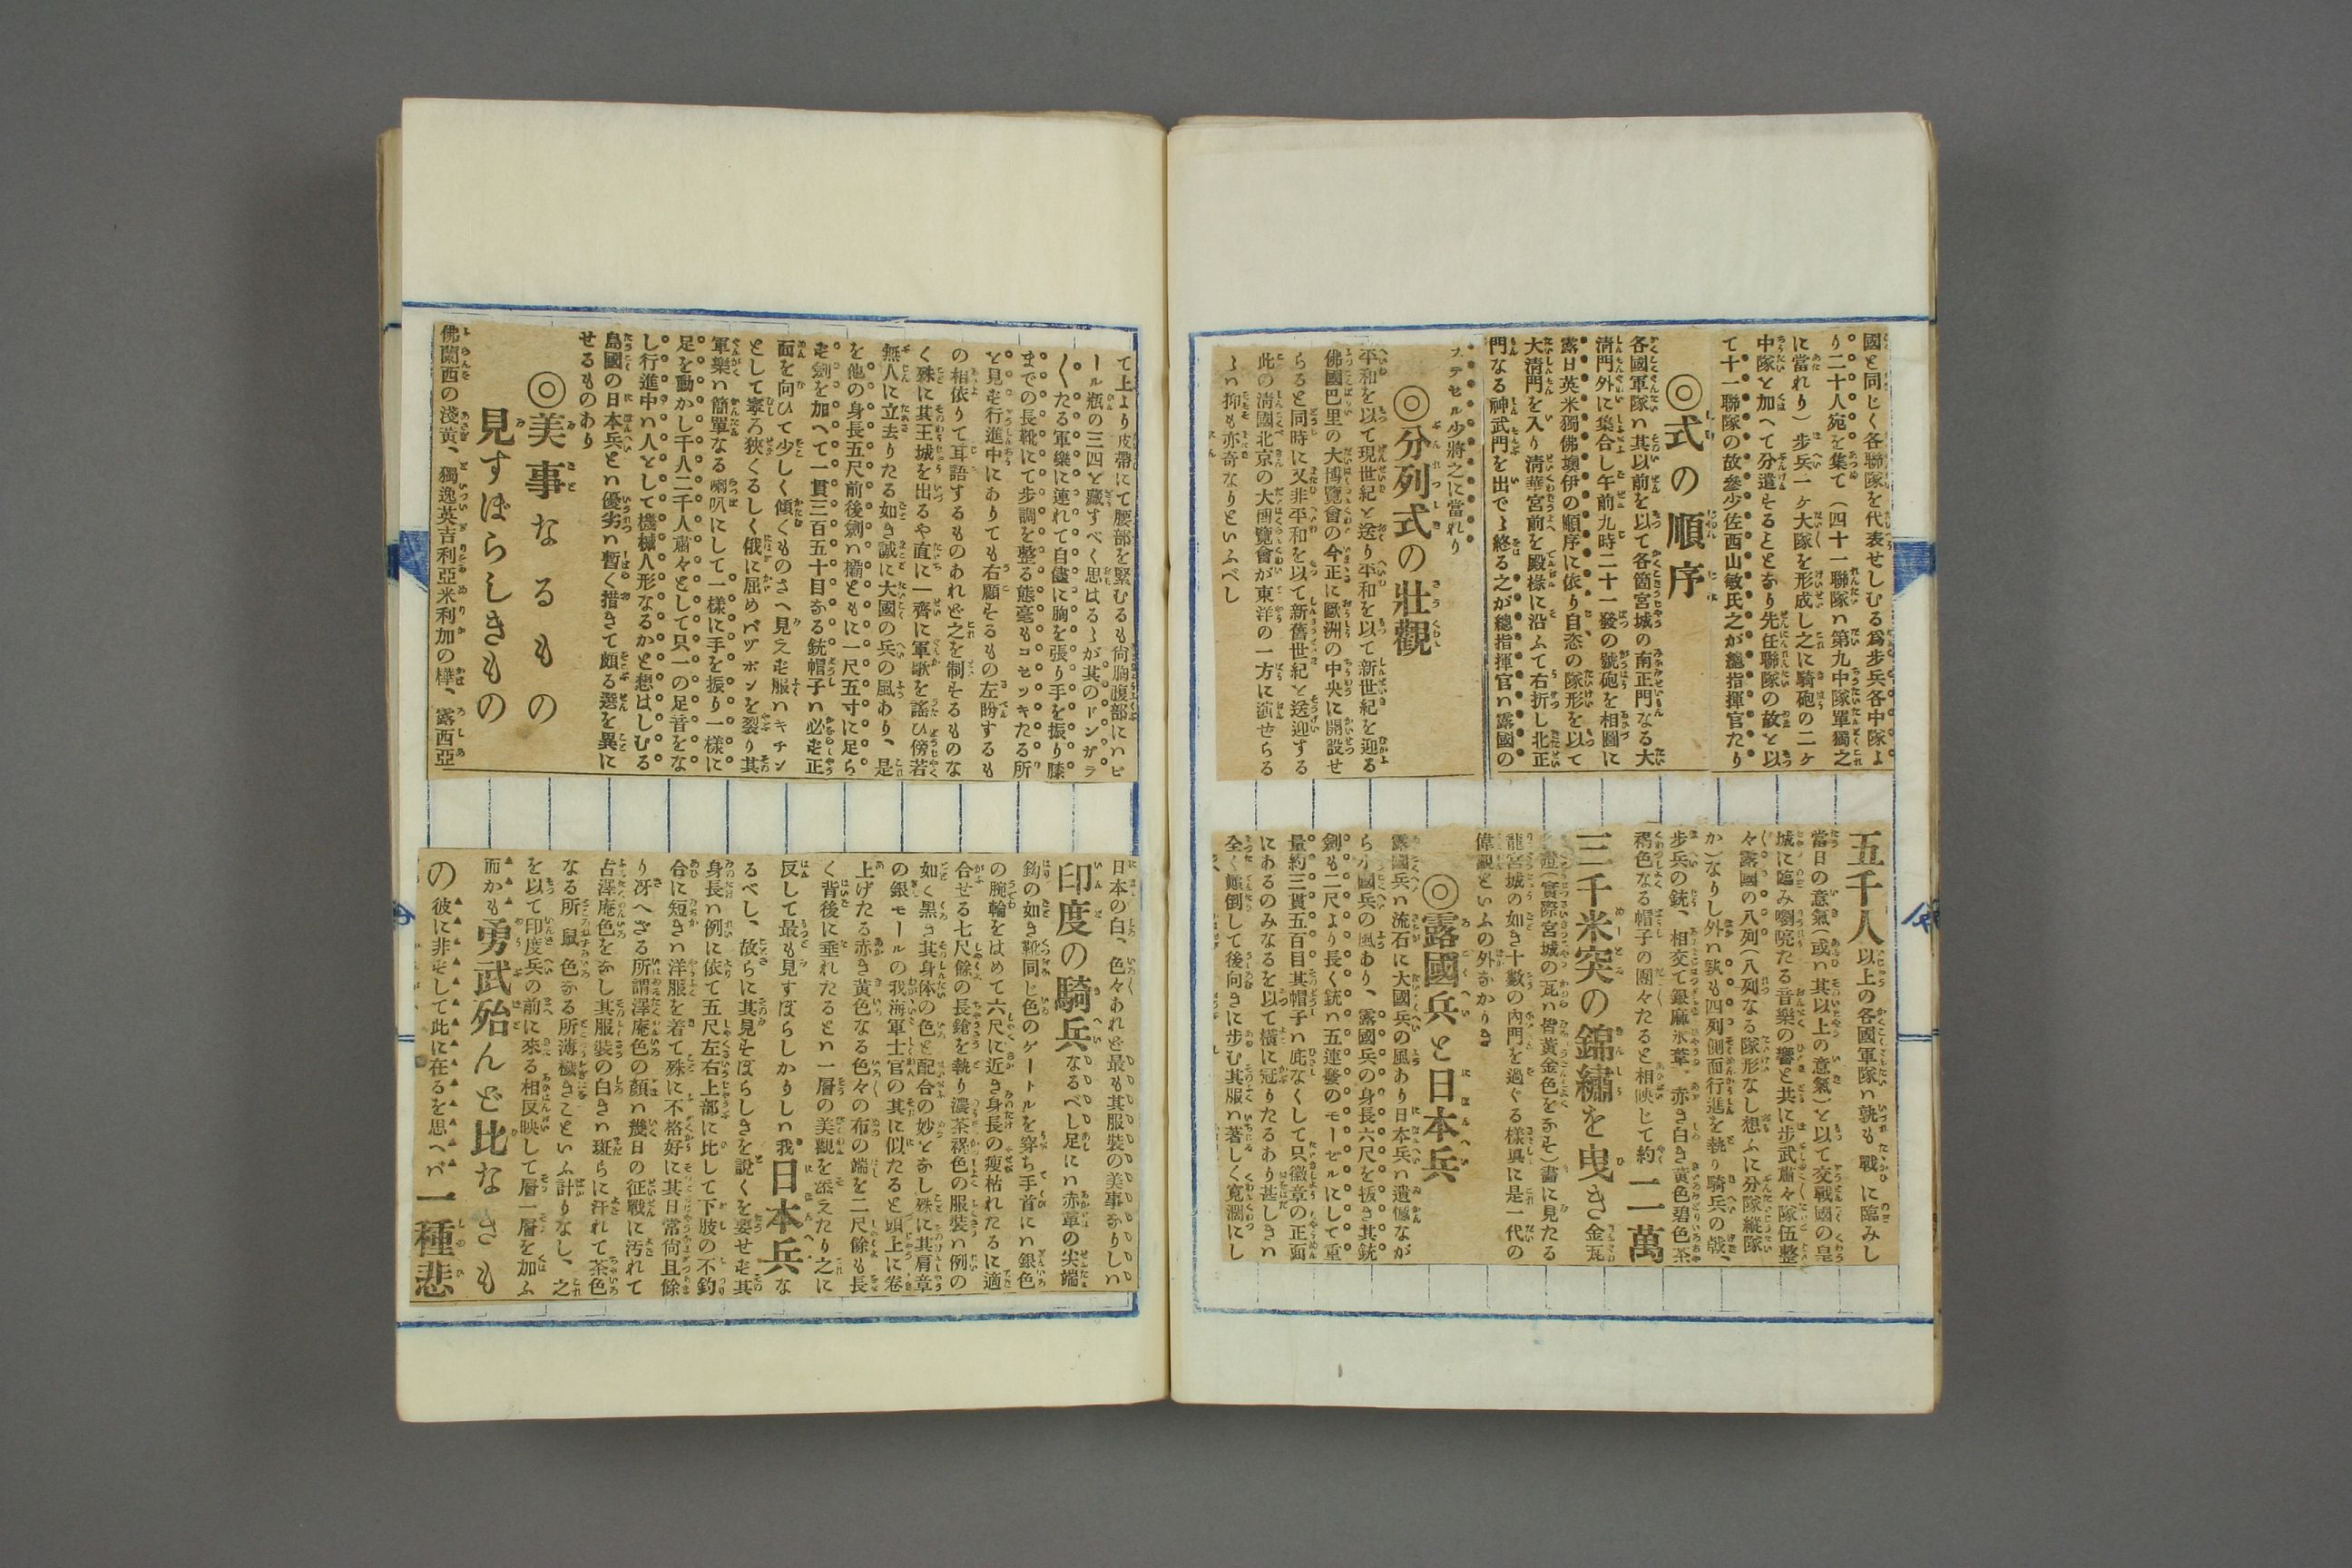 國と同じく各聯隊を代表せしむる爲步兵各中隊よ
り二十人宛を集て（四十一聯隊ハ第九中隊單獨之
に當れり）步兵一ヶ大隊を形成し之に騎砲の二ヶ
中隊と加へて分遣することとなり先任聯隊の故と以
て十一聯隊の故參少佐西山敏氏之が總指揮官たり
◎式の順序
各國軍隊ハ其以前を以て各箇宮城の南正門なる大
淸門外に集合し午前九時二十一發の號砲を相圖に
露日英米獨佛墺伊の順序に依り自恣の隊形を以て
大淸門を入り淸華宮前を殿椽に沿ふて右折し北正
門なる神武門を出で〻終る之が總指揮官ハ露國の
ステセル少將之に當れり
◎分列式の壯觀
平和を以て現世紀と送り平和を以て新世紀を迎る
佛國巴里の大博覽會の今正に歐洲の中央に開設せ
らると同時に又非平和を以て新舊世紀と送迎する
此の淸國北京の大博覽會が東洋の一方に演せらる
〻ハ抑も亦奇なりといふべし
五千人以上の各國軍隊ハ孰も戰に臨みし
當日の意氣（或ハ其以上の意氣）と以て交戰國の皇
城に臨み喇喨たる音樂の響と共に步武肅々隊伍整
々露國の八列（八列なる隊形なし想ふに分隊縱隊
か）なりし外ハ孰も四列側面行進を執り騎兵の戟、
步兵の銃、相交て銀麻氷葦、赤き白き黃色碧色茶
褐色なる帽子の團々たると相映じて約二萬
三千米突の錦繡を曳き金瓦
證（實際宮城の瓦ハ皆黃金色をなす）畵に見たる
龍宮城の如き十數の內門を過ぐる樣眞に是一代の
偉觀といふの外なかりき
◎露國兵と日本兵
露國兵ハ流石に大國兵の風あり日本兵ハ遺憾なが
ら小國兵の風あり、露國兵の身長六尺を抜き其銃
劍も二尺より長く銃ハ五連發のモーゼルにして重
量約三貫五百目其帽子ハ庇なくして只徽章の正面
にあるのみなるを以て橫に冠りたるあり甚しきハ
全く顚倒して後向きに步む其服ハ著しく寬濶にし
て上より皮帶にて腰部を緊むるも尙胸腹部にハビ
ール瓶の三四と藏すべく思はる〻が其のドンガラ
〱たる軍樂に連れて自儘に胸を張り手を振り膝
までの長靴にて步調を整る態毫もコセツキたる所
と見ず行進中にありても右顧するもの左眄するも
の相依りて耳語するものあれど之を制するものな
く殊に其王城を出るや直に一齊に軍歌を謠ひ傍若
無人に立去りたる如き誠に大國の兵の風あり、是
を他の身長五尺前後劍ハ欛ともに一尺五寸に足ら
ず劍を加へて一貫三百五十目なる銃帽子ハ必ず正
面を向ひて少しく傾くものさへ見えず服ハキチン
として寧ろ狹くるしく俄に屈めバヅボンを裂り其
軍樂ハ簡單なる喇叭にして一樣に手を振り一樣に
足を動かし千八二千人肅々として只一の足音をな
し行進中ハ人として機械人形なるかと想はしむる
島國の日本兵とハ優劣ハ暫く措きて頗る選を異に
せるものあり
◎美事なるもの
見すぼらしきもの
佛蘭西の淺黃、獨逸英吉利亞米利加の樺、露西亞
日本の白、色々あれど最も其服裝の美事なりしハ
印度の騎兵なるべし足にハ赤革の尖端
鈎の如き靴同じ色のゲートルを穿ち手首にハ銀色
の腕輪をはめて六尺に近き身長の瘦枯れたるに適
合せる七尺餘の長鎗を執り濃茶褐色の服裝ハ例の
如く黑き其身体の色と配合の妙となし殊に其肩章
の銀モールの我海軍士官の其に似たると頭上に卷
上げたる赤き黃色なる色々の布の端を二尺餘も長
く背後に垂れたるとハ一層の美觀を添えたり之に
反して最も見すぼらしかりしハ我日本兵な
るべし、故らに其見すぼらしきを說くを要せず其
身長ハ例に依て五尺左右上部に比して下肢の不釣
合に短きハ洋服を着て殊に不格好に其日常尙且餘
り冴へざる所謂澤庵色の顏ハ幾日の征戰に汚れて
古澤庵色をなし其服裝の白きハ斑らに汗れて茶色
なる所、鼠色なる所薄穢きこといふ計りなし、之
を以て印度兵の前に來る相反映して層一層を加ふ
而かも勇武殆んど比なきも
の彼に非ずして此に在るを思へバ一種悲